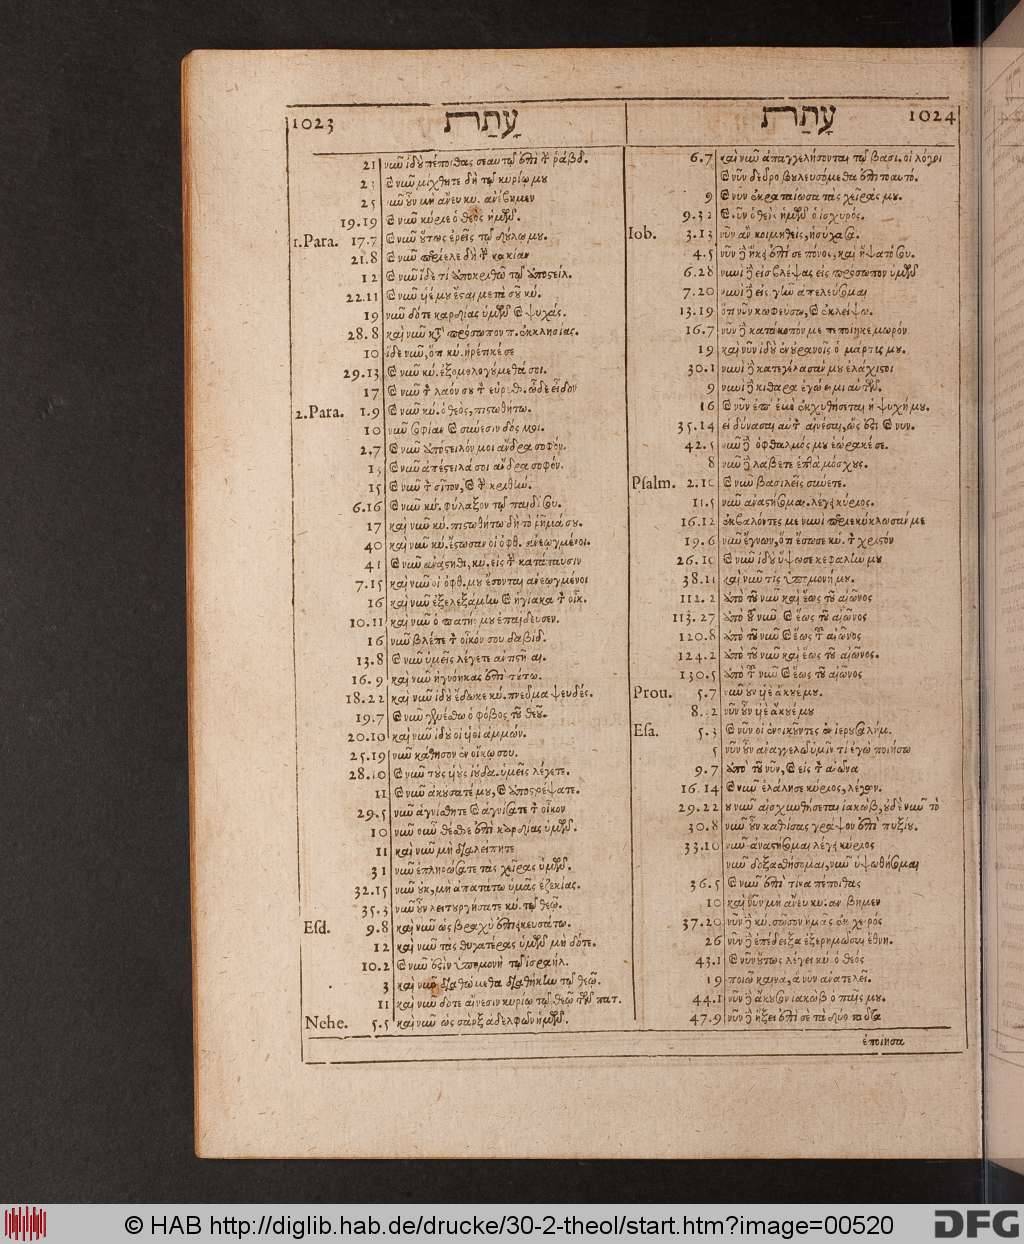 1023 עָתַרת
21 νῦν ἰδοὺ πέποιθας σεαυτῷ ἐπὶ τ̀ ῥάβδ.
καὶ νῦν μίχθητε δὴ τῷ κυρίῳ μου
25 νῦν οὖν μὴ ἄνευ κυ. ἀνέβημεν
19.19 καὶ νῦν κύριε ὁ θεὸς ἡμῶν.
1.Para. 17.7 καὶ νῦν οὕτως ἐρεῖς τῷ δούλῳ μου.
21.8 καὶ νῦν περίελε δὴ τ̀ κακίαν
12 καὶ νῦν ἴδε τί ἀποκριθῶ τῷ ἀποστείλ.
22.11 καὶ νῦν υἱέ μου ἔσται μετὰ σοῦ κύ.
19 νῦν δότε καρδίας ὑμῶν καὶ ψυχάς.
28.8 καὶ νῦν κτ̀ πρόσωπον π. ἐκκλησίας.
10 ἴδε νῦν, ὅτι κύ. ᾑρέτικέ σε
29.13 καὶ νῦν κύ. ἐξομολογούμεθά σοι.
17 καὶ νῦν τ̀ λαόν σου τ̀ εὑρεθ. ὧδε εἶδον
2.Para. 1.9 καὶ νῦν κύ. ὁ θεὸς, πιστωθήτω.
10 νῦν σοφίαν καὶ σύνεσιν δός μοι.
2.7 καὶ νῦν ἀπόστειλόν μοι ἄνδρα σοφόν.
13 καὶ νῦν ἀπέστειλά σοι ἄνδρα σοφόν.
15 καὶ νῦν τ̀ σῖτον, καὶ τ̀ κριθὴν.
6.16 καὶ νῦν κύ. φύλαξον τῷ παιδί σου.
17 καὶ νῦν κύ. πιστωθήτω δὴ τὸ ῥῆμά σου.
40 καὶ νῦν κύ. ἔστωσαν οἱ ὀφθ. ἀνεῳγμένοι.
41 καὶ νῦν ἀνάστηθι, κύ. εἰς τ̀ κατάπαυσιν
7.15 καὶ νῦν οἱ ὀφθ. μου ἔσονται ἀνεῳγμένοι
16 καὶ νῦν ἐξελεξάμην καὶ ἡγίακα τ̀ οἶκ.
10.11 καὶ νῦν ὁ πατήρ μου ἐπαίδευσεν.
16 νῦν βλέπε τ̀ οἶκόν σου δαβίδ.
13.8 καὶ νῦν ὑμεῖς λέγετε
16.9 καὶ νῦν ἠγνόηκας ἐπὶ τούτῳ.
18.22 καὶ νῦν ἰδοὺ ἔδωκε κύ. πνεῦμα ψευδές.
19.7 καὶ νῦν γενέσθω ὁ φόβος τοῦ θεοῦ.
20.10 καὶ νῦν ἰδοὺ οἱ υἱοὶ ἀμμών.
25.19 νῦν κάθησον ἐν οἴκῳ σου.
28.10 καὶ νῦν τοὺς υἱοὺς ἰούδα ὑμεῖς λέγετε.
11 καὶ νῦν ἀκούσατέ μου, καὶ ἀποστρέψατε.
29.5 νῦν ἁγνίσθητε καὶ ἁγνίσατε τ̀ οἶκον
10 νῦν οὖν θέσθε ἐπὶ καρδίας ὑμῶν.
11 καὶ νῦν μὴ διαλείπητε
31 νῦν ἐπληρώσατε τὰς χεῖρας ὑμῶν.
32.15 νῦν οὐκ, μὴ ἀπατάτω ὑμᾶς ἐζεκίας.
35.3 νῦν οὖν λειτουργήσατε κύ. τῷ θεῷ.
Esd. 9.8 καὶ νῦν ὡς βραχὺ ἐπεσκευσάτω.
12 καὶ νῦν τὰς θυγατέρας ὑμῶν μὴ δότε.
10.2 καὶ νῦν ἐστὶν ὑπομονὴ τῷ ἰσραήλ.
3 καὶ νῦν διαθώμεθα διαθήκην τῷ θεῷ.
11 καὶ νῦν δότε αἴνεσιν κυρίῳ τῷ θεῷ τῶν πατ.
Nehe. 5.5 καὶ νῦν ὡς σὰρξ ἀδελφῶν ἡμῶν.
עָתַרת 1024
6.7 καὶ νῦν ἀπαγγελήσονται τῷ βασι. οἱ λόγοι
καὶ νῦν δεῦρο βουλευσόμεθα ἐπὶ τοαυτό.
9 καὶ νῦν ἐκραταίωσα τὰς χεῖράς μου.
9.32 καὶ νῦν ὁ θεὸς ἡμῶν ὁ ἰσχυρός.
Iob. 3.13 νῦν ἂν κοιμηθεὶς, ἡσύχασα.
4.5 νῦν δὲ ἥκει ἐπὶ σε πόνος, καὶ ἥψατό σου.
6.28 νυνὶ δὲ εἰσβλέψας εἰς πρόσωπον ὑμῶν
7.20 νυνὶ δὲ εἰς γῆν ἀπελεύσομαι
13.19 ὅτι νῦν κωφεύσω, καὶ ἐκλείψω.
16.7 νῦν δὲ κατάκοπόν με πεποίηκε μωρόν
19 καὶ νῦν ἰδοὺ ἐν οὐρανοῖς ὁ μάρτυς μου.
30.1 νυνὶ δὲ κατεγέλασάν μου ἐλάχιστοι
9 νυνὶ δὲ κιθάρα ἐγώ εἰμι αὐτῶν.
16 καὶ νῦν ἐπ' ἐμὲ ἐκχυθήσεται ἡ ψυχή μου.
35.14 εἰ δύνασαι αὐτ̀ αἰνέσαι, ὥς ἐστι καὶ νυν.
42.5 νυνὶ δὲ ὀφθαλμός μου ἑώρακέ σε.
8 νῦν δὲ λάβετε ἑπτὰ μόσχους.
Psalm. 2.10 καὶ νῦν βασιλεῖς σύνετε.
11.5 νῦν ἀναστήσομαι λέγει κύριος.
16.12 ἐκβαλόντες με νυνὶ περιεκύκλωσάν με
19.6 νῦν ἔγνων, ὅτι ἔσωσε κύ. τ̀ χριστὸν
26.10 καὶ νῦν ἰδοὺ ὕψωσε κεφαλήν μου
38.11 καὶ νῦν τίς ὑπομονή μου.
112.2 ἀπὸ τοῦ νῦν καὶ ἕως τοῦ αἰῶνος
113.27 ἀπὸ τοῦ νῦν καὶ ἕως τοῦ αἰῶνος
120.8 ἀπὸ τοῦ νῦν καὶ ἕως τοῦ αἰῶνος
124.2 ἀπὸ τοῦ νῦν καὶ ἕως τοῦ αἰῶνος.
130.5 ἀπὸ τοῦ νῦν καὶ ἕως τοῦ αἰῶνος
Prou. 5.7 νῦν οὖν υἱὲ ἄκουέ μου.
νῦν οὖν υἱὲ ἄκουέ μου
Esa. 5.3 καὶ νῦν οἱ ἐνοικοῦντες ἐν ἱερουσαλήμ.
5 νῦν οὖν ἀναγγελῶ ὑμῖν τί ἐγὼ ποιήσω
9.7 ἀπὸ τοῦ νῦν, καὶ εἰς τ̀ αἰῶνα
16.14 καὶ νῦν ἐλάλησε κύριος, λέγων.
29.22 οὐ νῦν αἰσχυνθήσεται ἰακώβ, οὐδὲ νῦν τὸ
30.8 νῦν οὖν καθίσας γράψον ἐπὶ πυξίου.
33.10 νῦν ἀναστήσομαι λέγει κύριος
νῦν δοξασθήσομαι, νῦν ὑψωθήσομαι
36.5 καὶ νῦν ἐπὶ τίνα πέποιθας
10 καὶ νῦν μὴ ἄνευ κυ. ἀνέβημεν
37.20 νῦν δὲ κύ. σῶσον ἡμᾶς ἐκ χειρός
26 νῦν δὲ ἐπέδειξα ἐξερημῶσαι ἔθνη.
43.1 καὶ νῦν οὕτως λέγει κύ. ὁ θεὸς
19 ποιῶ καινά, ἃ νῦν ἀνατελεῖ.
44.1 νῦν δὲ ἄκουσον ἰακὼβ ὁ παῖς μου.
47.9 νῦν δὲ ἥξει ἐπὶ σὲ τὰ δύο ταῦτα
ἐποίησα
© HAB http://diglib.hab.de/drucke/30-2-theol/start.htm?image=00520
DFG